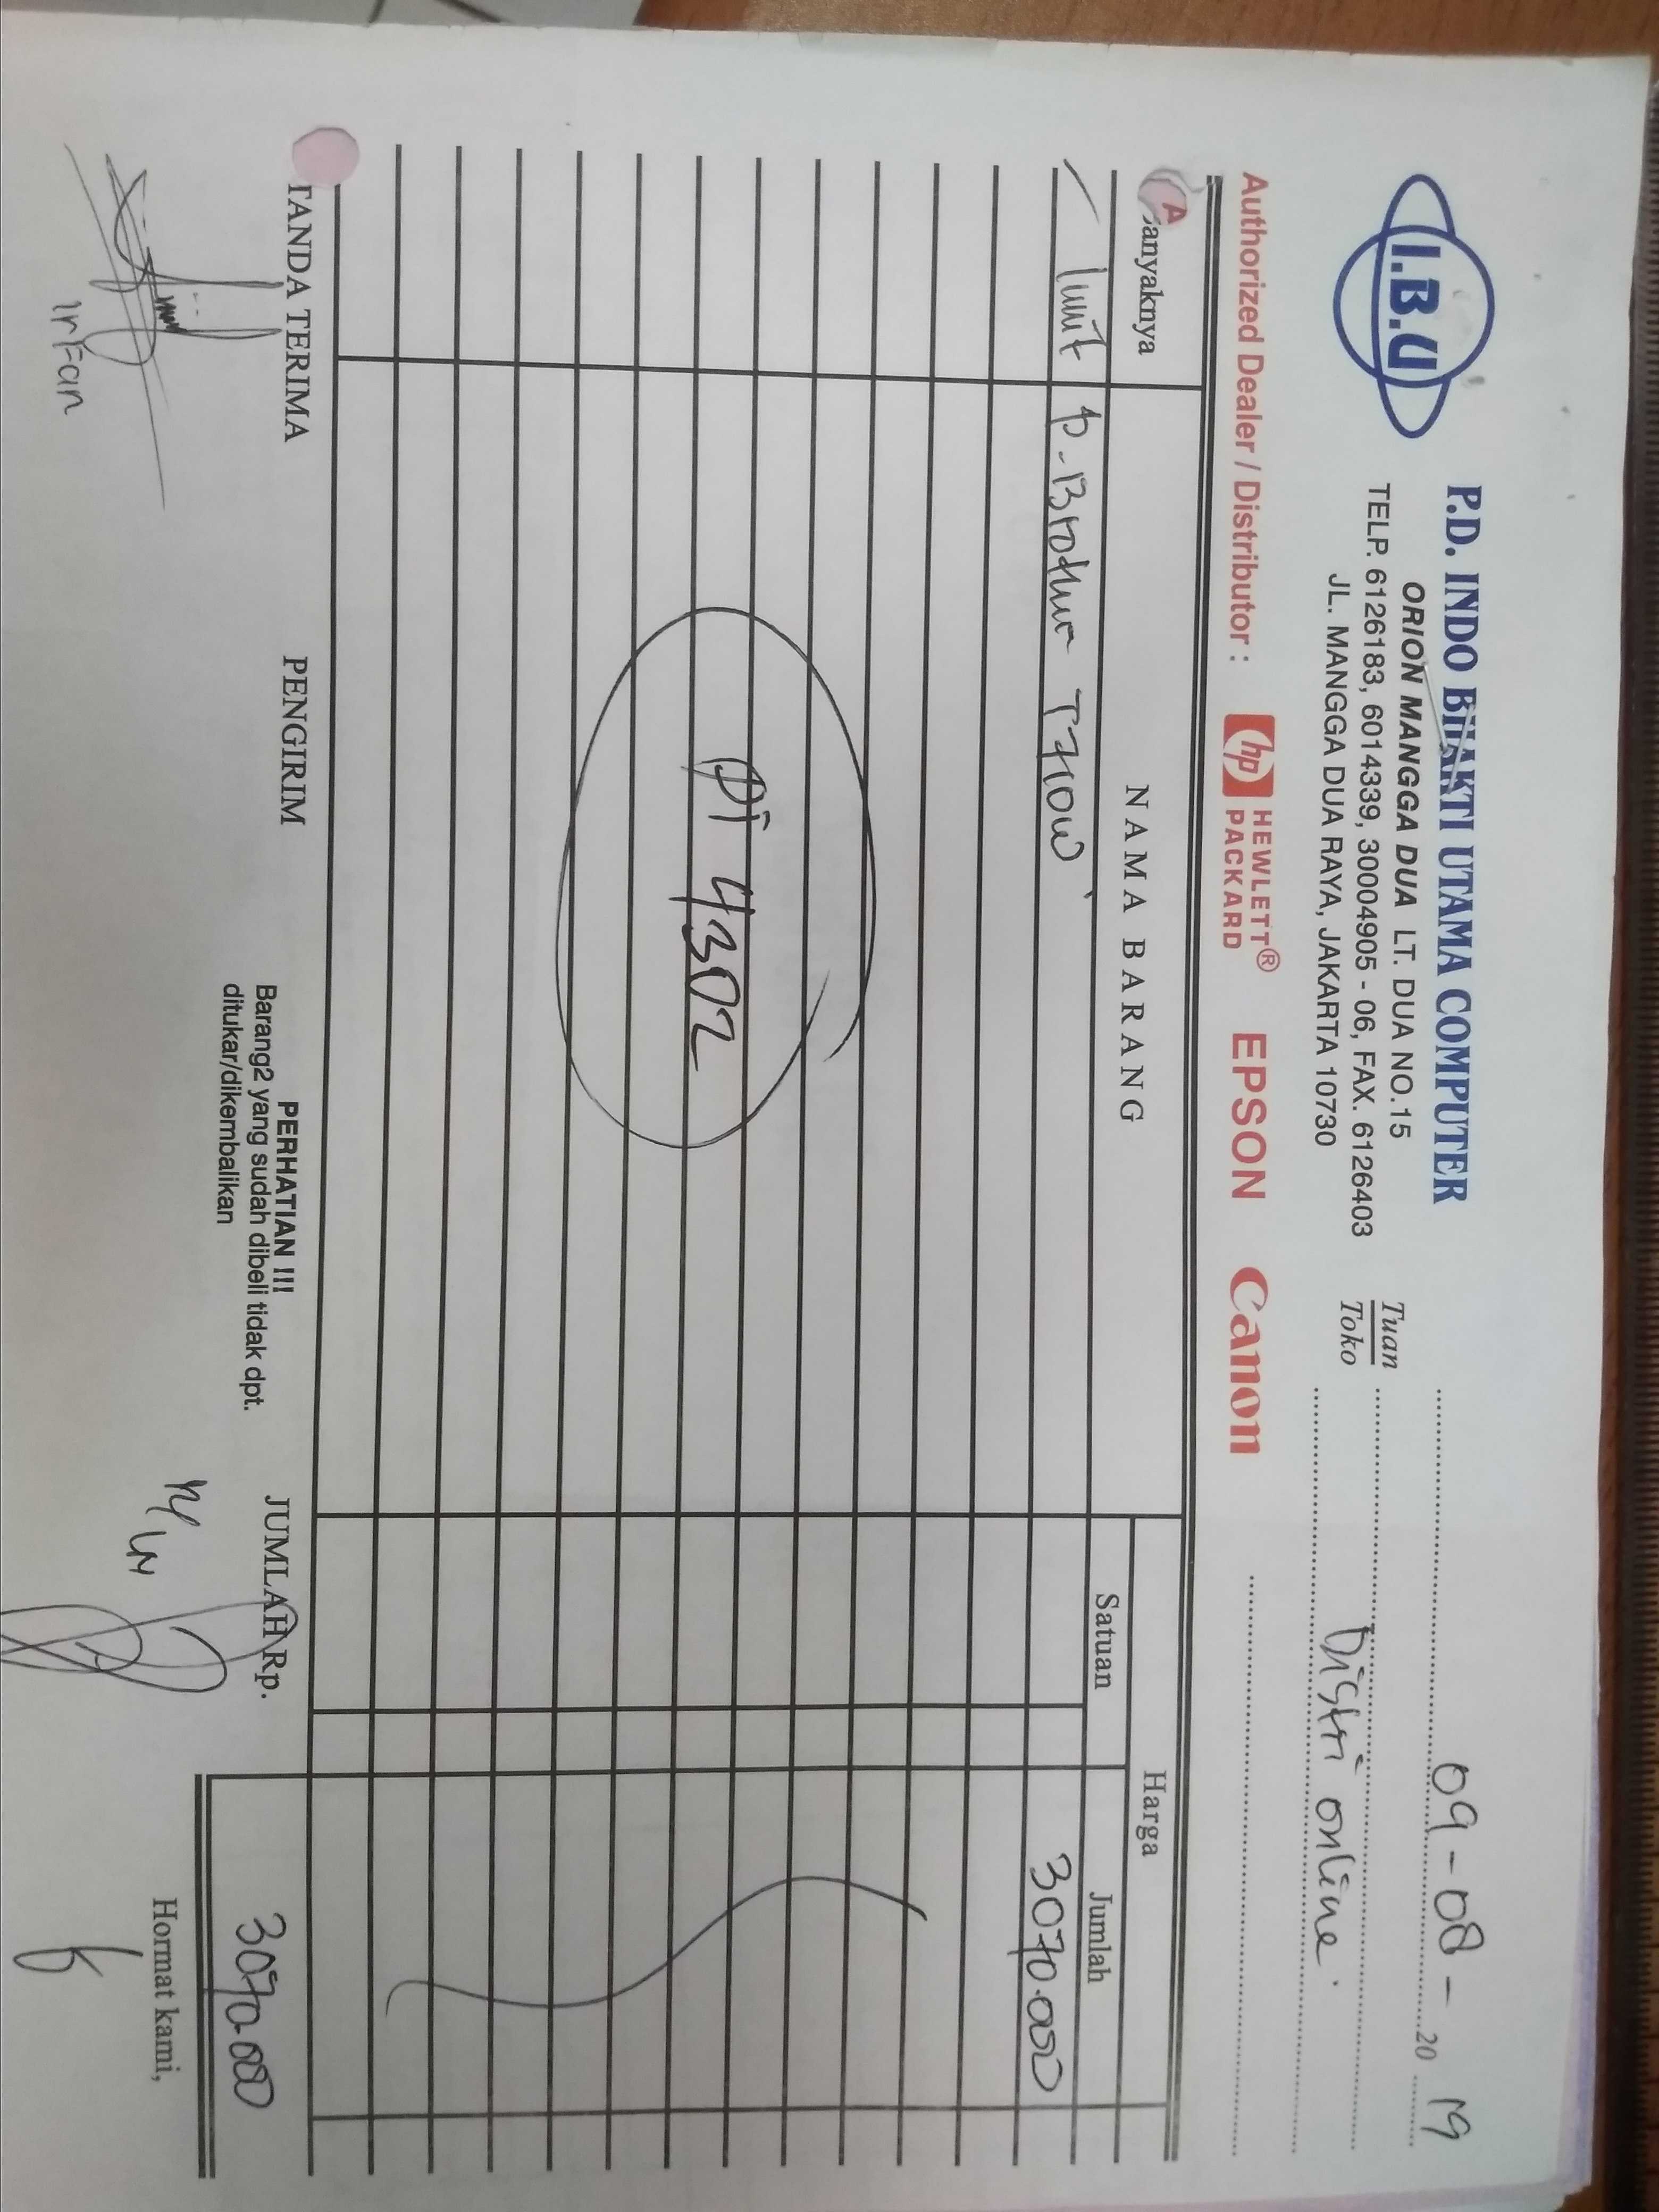 I.B.U
P.D. INDO BHAKTI UTAMA COMPUTER
ORION MANGGA DUA LT. DUA NO.15
TELP. 6126183, 6014339, 30004905 - 06, FAX. 6126403
JL. MANGGA DUA RAYA, JAKARTA 10730
09-08-2019
Tuan
Toko
Distri online.
Authorized Dealer / Distributor :
hp HEWLETT®
PACKARD
EPSON
Canon
A
anyaknya
NAMA BARANG
Harga
Satuan
Jumlah
1 unit p-Brother T710W 3070.000
Di 4302
TANDA TERIMA
PENGIRIM
PERHATIAN !!!
Barang2 yang sudah dibeli tidak dpt.
ditukar/dikembalikan
JUMLAH Rp. 3070.000
Hormat kami,
Irfan